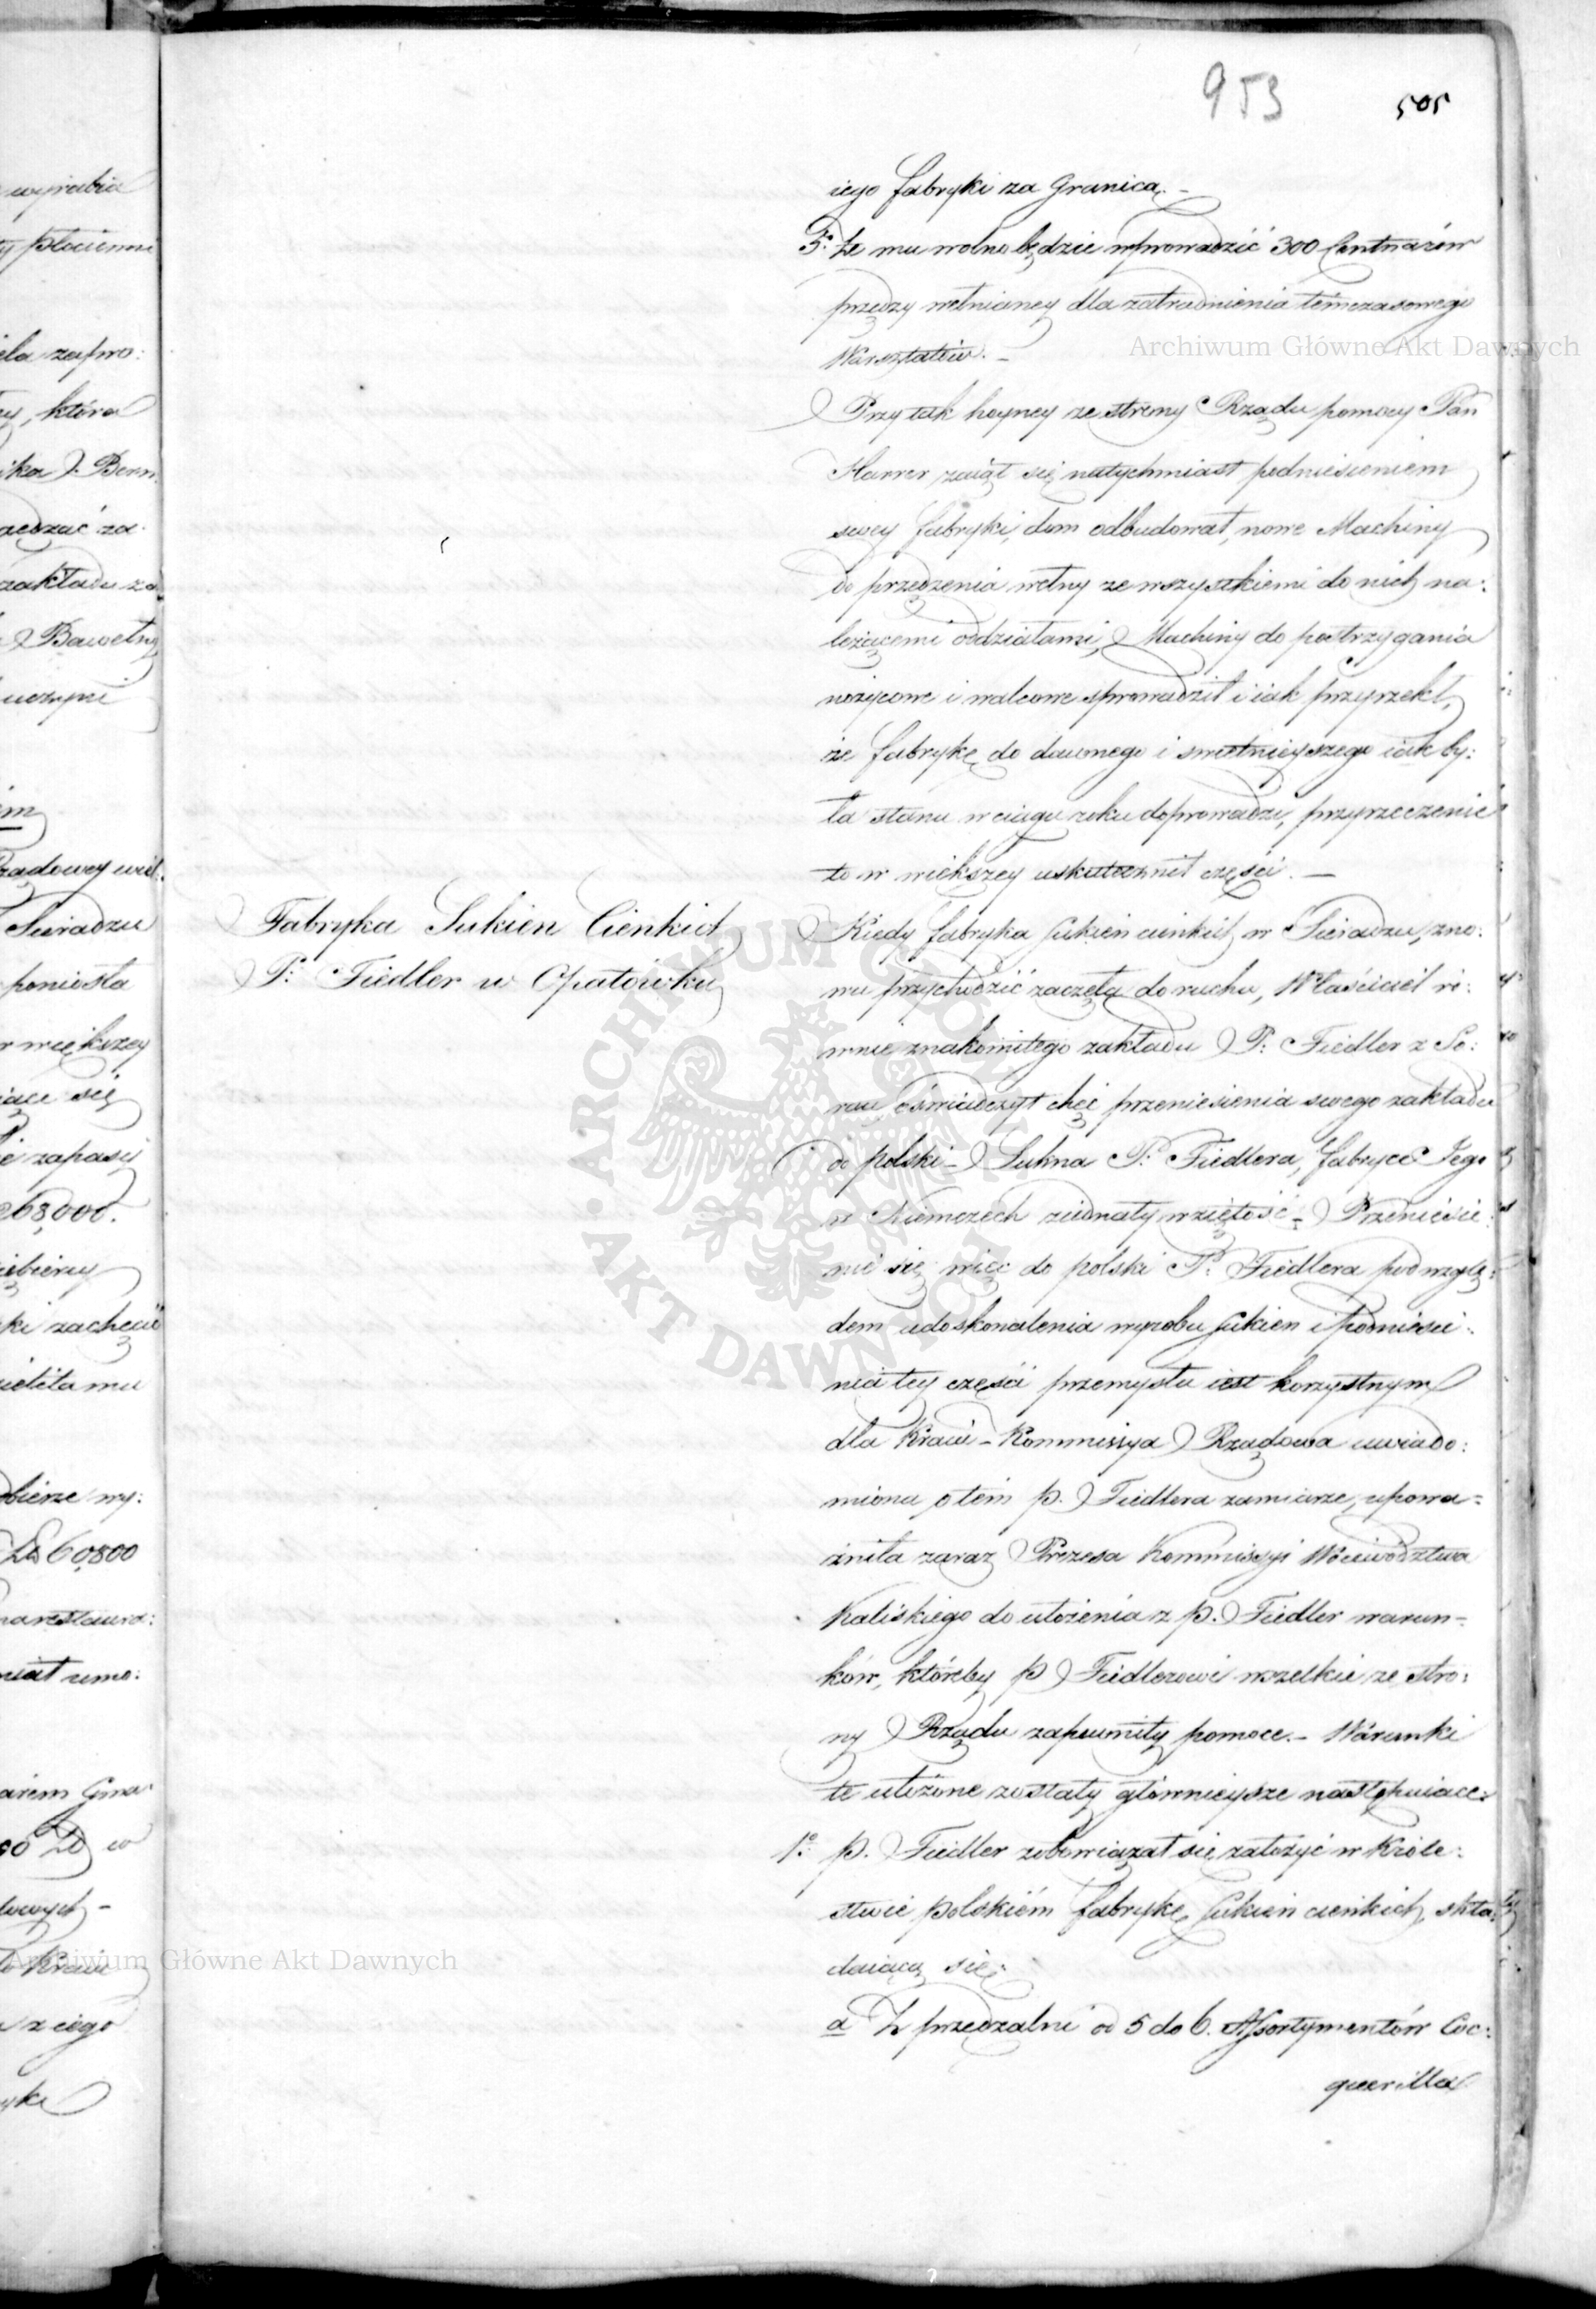 953
505
iego fabryki za Granicą. –
5o. Że mu wolno będzie wprowadzić 300 Centnarów
przędzy wełnianey dla zatrudnienia témczasowego
Warsztatów. –
Przy tak hoyney ze strony Rządu pomocy Pan
Harrer zaiął się natychmiast podniesieniem
swey fabryki, dom odbudował, nowe Machiny
do przędzenia wełny ze wszystkiemi do nich na:
leżącemi oddziałami, Machiny do postrzygania
nożycowe i walcowe sprowadził i iak przyrzekł,
że fabrykę do dawnego i świetnieyszego iak by:
ła stanu w ciągu roku doprowadzi, przyrzeczenie
to w większey uskutecznił części. –
Fabryka Sukien Cienkich
P: Fiedler w Opatówku
Kiedy fabryka sukien cienkich w Sieradzu, zno:
wu przychodzić zaczęła do ruchu, Właściciel ró:
wnie znakomitego zakładu P: Fiedler z
oświadczył chęć przeniesienia swego zakładu
do polski – Sukna P: Fiedlera, fabryce Jego
w Niemczech ziednały wziętość – Przeniesie:
nie się więc do polski P: Fiedlera pod wzglę:
dem udoskonalenia wyrobu sukien i podniesie:
nia tey części przemysłu iest korzystnym
dla Kraiu – Kommissya Rządowa uwiado:
miona o tém p. Fiedlera zamiarze, upowa:
żniła zaraz Prezesa Kommissyi Woiewództwa
Kaliskiego do ułożenia z p. Fiedler warun:
ków, któreby p Fiedlerowi wszelkie ze stro:
ny Rządu zapewniły pomoce. – Warunki
te ułożone zostały główneysze następuiące:
1o. p. Fiedler zobowiązał się założyć w Króle:
stwie polskiém fabrykę sukien cienkich, skła:
daiącą się:
a Z przędzalni od 5 do 6. Assortymentów Coc:
querilla
wyrabia
zapro:
która
zakładu za
Bawełny
Sieradzu
poniosła
większey
się
zapasy
68,000.
zachęcić
mu
60800
Kraiu
z iego
Archiwum Główne Akt Dawnych
ARCHIWUM GŁÓWNE
AKT DAWNYCH
Archiwum Główne Akt Dawnych